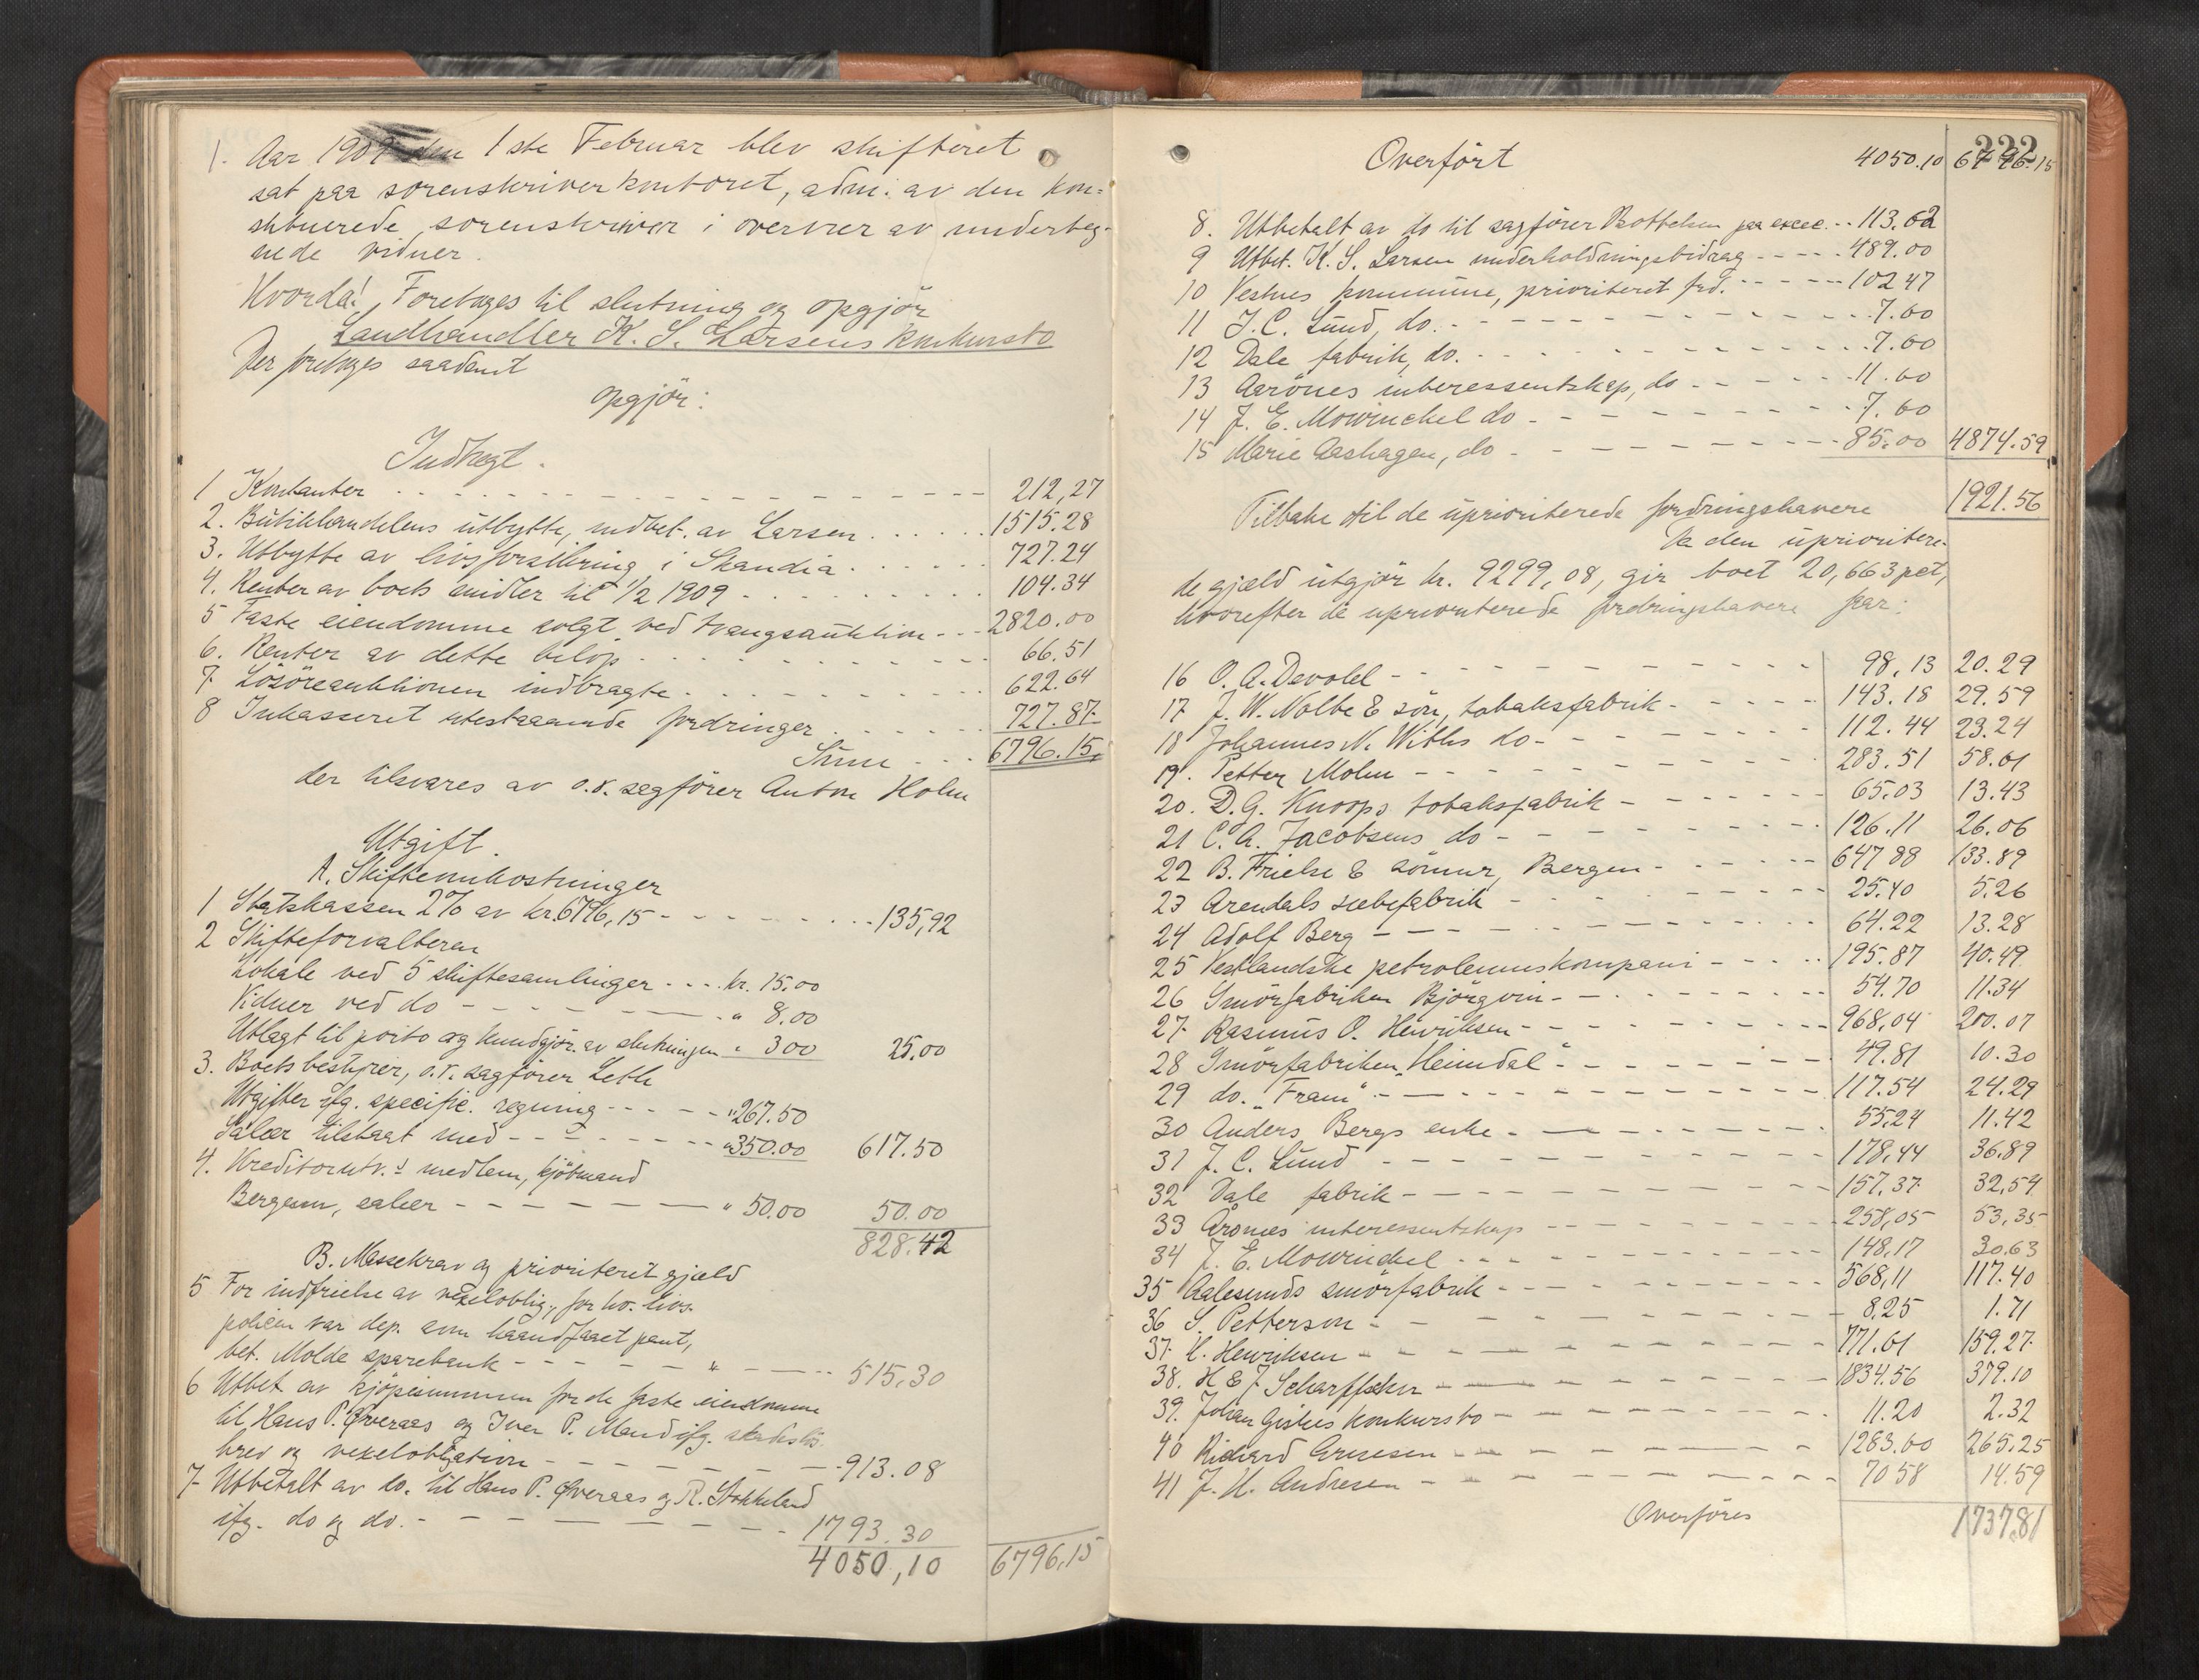 1. Aar 1909 den 1ste Februar blev skifteret
sat paa sorenskriverkontoret, adm. av den kon=
stituerede sorenskriver i overvær av underteg-
nede vidner.
Hvorda! Foretages til slutning og opgjör
Landhandler K. S. Larsens konkursbo
Der foretages saadant
opgjör:
Indtægt.
1 Kontanter 212,27
2. Butikhandelens utbytte, indbet. av Larsen 1515.28
3. Utbytte av livsforsikring i Skandia 727.24
4. Renter av boets midler til 1/2 1909 104.34
5 Faste eiendomme solgt ved tvangsauktion 2820.00
6. Renter av dette belöp 66.51
7 Lösöreauktionen indbragte 622.64
8 Inkasseret utestaaende fordringer 727.87
Sum 6796.15
der tilsvares av o.r. sagförer Anton Holm
Utgift.
A. Skifteomkostninger
1 Statskassen 2% av kr. 6796,15 135,92
2 Skifteforvalteren
Lokale ved 5 skiftesamlinger kr. 15.00
Vidner ved do " 8.00
Utlagt til porto og kundgjör. av slutningen " 300 25.00
3. Boets bestyrer, o.r. sagförer Leth
Utgifter ifg. specific. regning " 267.50
Salær tilstaat med " 350.00 617.50
4. Kreditorutv.s medlem, kjöbmand
Bergem, salær " 50.00 50.00
828.42
B. Massekrav og prioriteret gjæld
5 For indfrielse av vexeloblig., for hv. livs-
policen var dep. som haandfaaet pant,
bet. Molde sparebank " 515,30
6 Utbet av kjöpesummen for de faste eiendomme
til Hans P. Øveraas og Iver P. Mand ifg. skadeslös-
brev og vexelobligation 913.08
7 Utbetalt av do. til Hans P. Øveraas og R. Stokkeland
ifg. do og do. 1793.30
4050,10 6796,15
222
Overfört 4050.10 6796.15
8. Utbetalt av do til sagförer Bottolsen paa execc. 113.62
9 Utbet. K. S. Larsen underholdningsbidrag 489.00
10 Vestnes kommune, prioriteret frd. 102 47
11 J. C. Lund, do. 7.00
12 Dale fabrik, do. 7.00
13 Aarönes interessentskap, do 11.00
14 J. E. Mowinckel do 7.00
15 Marie Aashagen, do 85.00 4874.59
Tilbake til de uprioriterede fordringshavere 1921.56
Da den uprioritere-
de gjæld utgjör kr. 9299,08, gir boet 20,663 pct,
hvorefter de uprioriterede fordringshavere faar:
16 O. A. Devold 98,13 20.29
17 J. W. Nolte & sön, tobaksfabrik 143.18 29.59
18 Johannes N. Withs do 112.44 23.24
19. Petter Molm 283.51 58.61
20. D. G. Knoops tobaksfabrik 65.03 13.43
21 C. A. Jacobsens do 126.11 26.06
22 B. Friele & sönner, Bergen 647 88 133.89
23 Arendals sæbefabrik 25.40 5.26
24 Adolf Berg 64.22 13.28
25 Vestlandske petroleumskompani 195.87 40.49
26 Smörfabriken Björgvin 54.70 11.34
27 Rasmus O. Henriksen 968,04 200.07
28 Smörfabriken "Heimdal" 49.81 10.30
29 do. "Fram" 117.54 24.29
30 Anders Bergs enke 55,24 11.42
31 J. C. Lund 178,44 36.89
32 Dale fabrik 157,37 32,54
33 Arönes interessentskap 258,05 53,35
34 J. E. Mowinckel 148,17 30.63
35 Aalesunds smörfabrik 568,11 117.40
36 S. Petterson 8.25 1.71
37 H. Henriksen 771.01 159.27
38. H & J Scharffscher 1834.56 379.10
39. Johan Giskes konkursbo 11.20 2.32
40 Rickard Ernesen 1283.60 265.25
41 J. H. Andresen 70 58 14.59
Overföres 1737.81